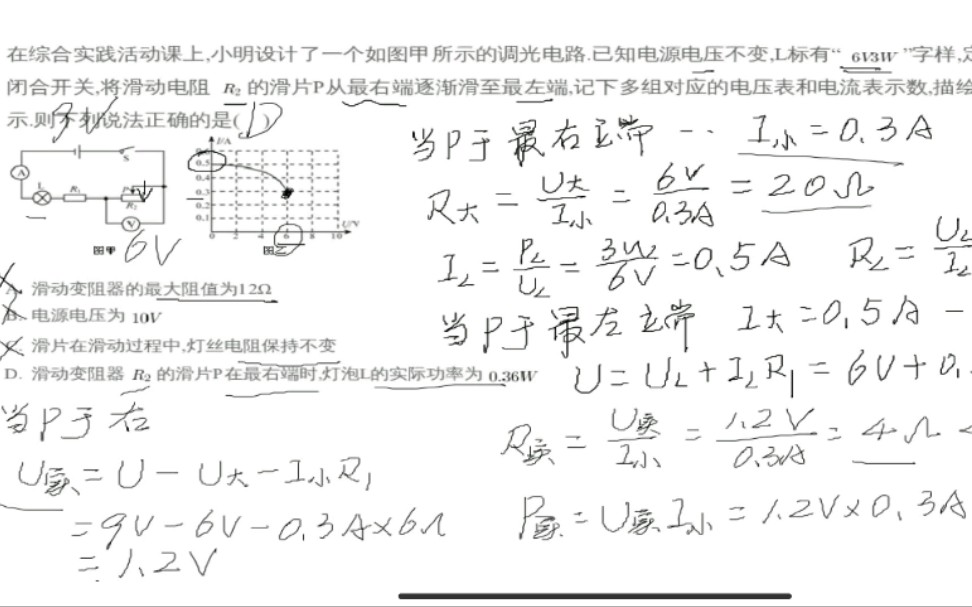 在综合实践活动课上,小明设计了一个如图甲所示的调光电路.已知电源电压不变,L标有“ 6V3W ”字样,定
闭合开关,将滑动电阻 R₂ 的滑片P从最右端逐渐滑至最左端,记下多组对应的电压表和电流表示数,描绘
示.则下列说法正确的是( D
9V
S
A
L
R₁
P
R₂
V
图甲
6V
I/A
0.5
0.4
0.3
0.2
0.1
0 2 4 6 8 10 U/V
图乙
A. 滑动变阻器的最大阻值为12Ω
B. 电源电压为 10V
C. 滑片在滑动过程中,灯丝电阻保持不变
D. 滑动变阻器 R₂ 的滑片P在最右端时,灯泡L的实际功率为 0.36W
当P于右
U实 = U − U大 − I小R₁
= 9V − 6V − 0.3A×6Ω
= 1.2V
当P于最右端 ·· I小 = 0.3A
R大 = U大/I小 = 6V/0.3A = 20Ω
I_L = P_L/U_L = 3W/6V = 0.5A R_L = U_L/I_L
当P于最左端 I大 = 0.5A −
U = U_L + I_L R₁ = 6V + 0.
R实 = U实/I小 = 1.2V/0.3A = 4Ω <
P实 = U实I小 = 1.2V×0.3A